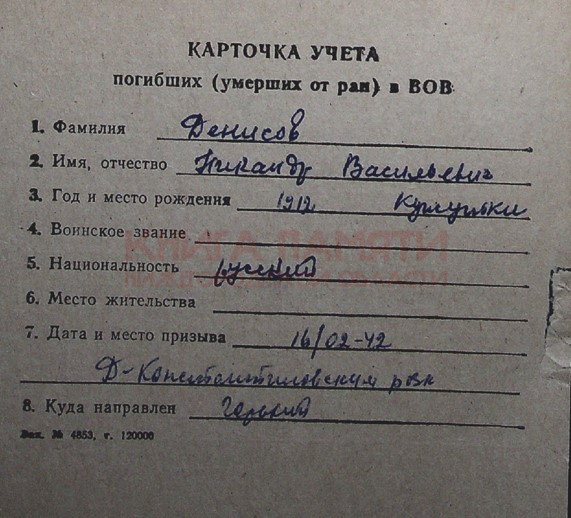 КАРТОЧКА УЧЕТА
погибших (умерших от ран) в ВОВ
1. Фамилия Денисов
2. Имя, отчество Никандр Васильевич
3. Год и место рождения 1912
4. Воинское звание
КНИГА ПАМЯТИ
5. Национальность русский
НИЖЕГОРОДСКОЙ ОБЛАСТИ
6. Место жительства
7. Дата и место призыва 16/02-42
Д-Константиновским рвк
8. Куда направлен Горький
Зак. № 4853, т. 120000